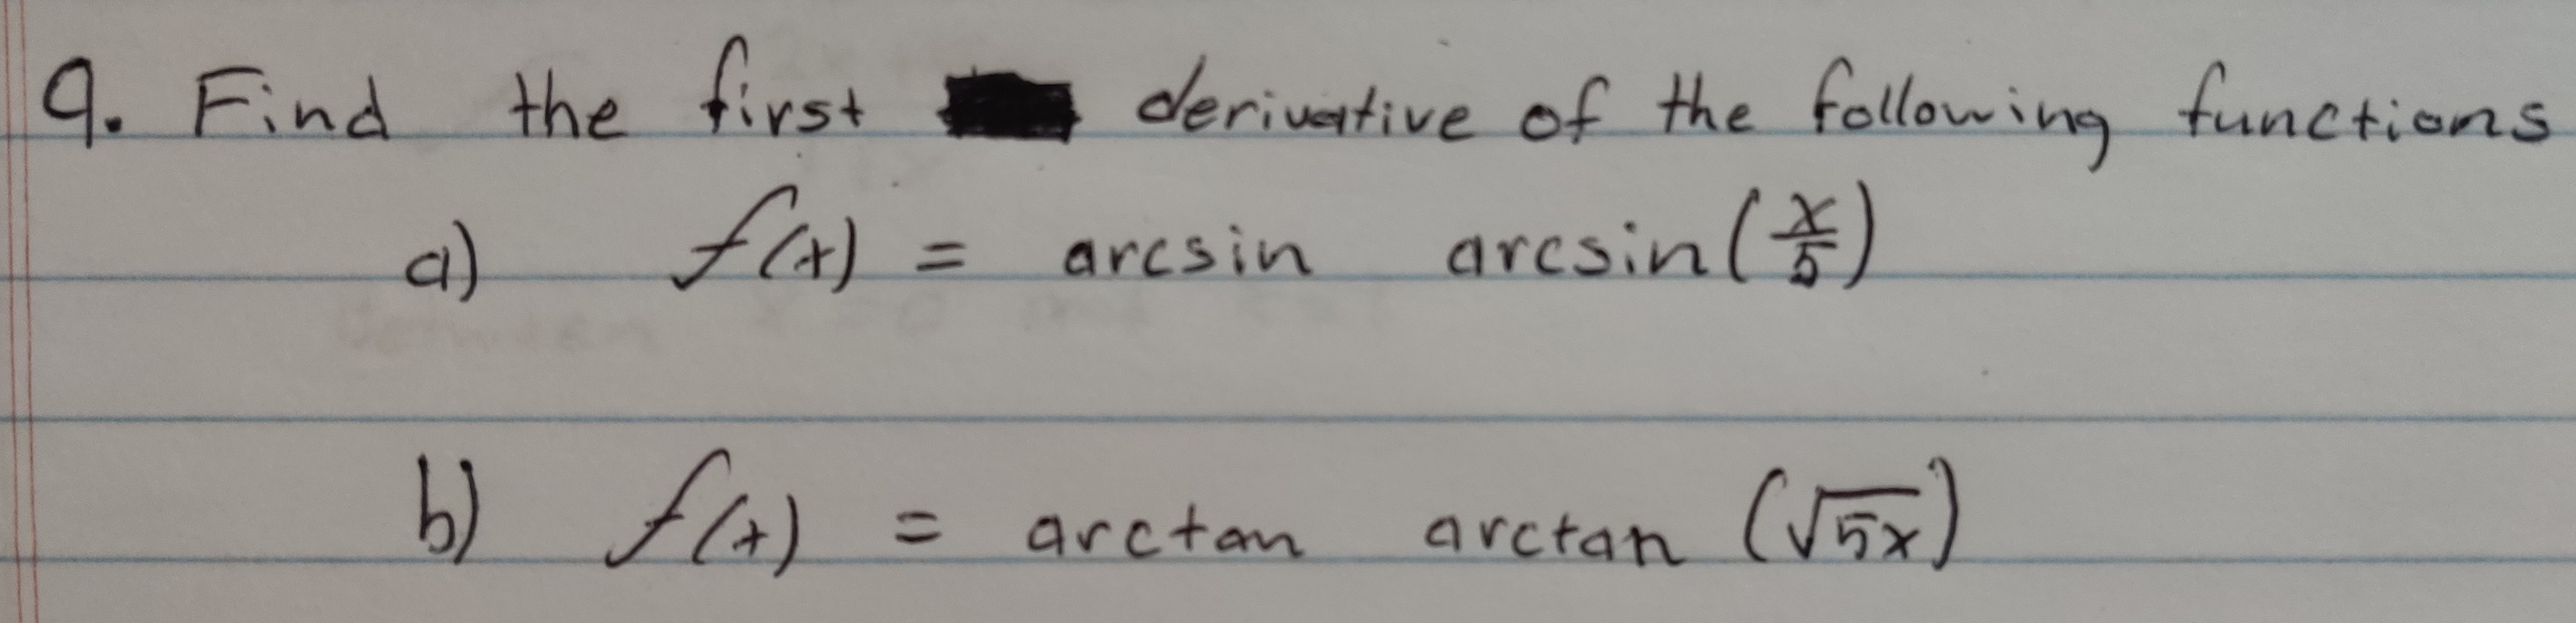 9. Find the first derivative of the following functions
a) f(x) = arcsin arcsin(x/5)
b) f(x) = arctan arctan (√5x)